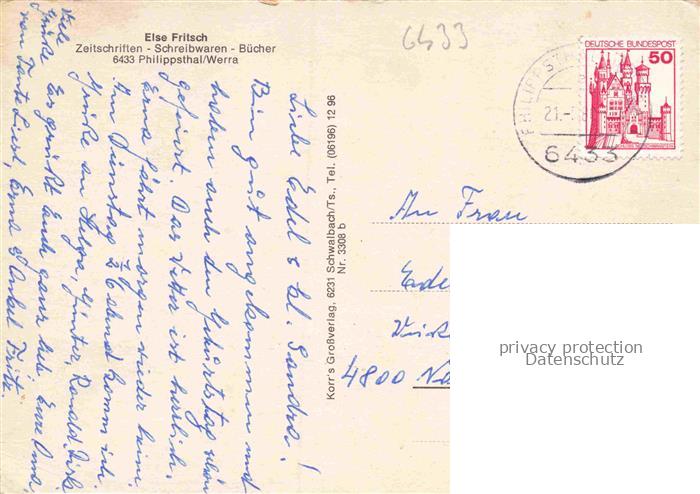 Else Fritsch
Zeitschriften - Schreibwaren - Bücher
6433 Philippsthal/Werra
6433
DEUTSCHE BUNDESPOST
50
PHILIPPST
21.-
6433
Liebe Edel & kl. Sandra!
Bin gut angekommen und
haben auch den Geburtstag schön
gefeiert. Das Wetter ist herrlich.
Erna fährt morgen wieder heim.
Am Dienstag Abend komm ich.
Grüße an Helga, Günter, Ronald, Dirk
Es grüßt Euch ganz lieb Eure Oma
Viele Grüße
von Tante Liesl, Erna & Onkel Fritz.
Korr's Großverlag, 6231 Schwalbach/Ts., Tel. (06196) 12 96
Nr. 3308 b
An Frau
4800
privacy protection
Datenschutz